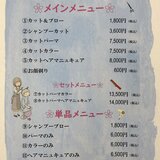 メインメニュー
①カット&ブロー 1,800円(税込)
②シャンプーカット 3,600円(税込)
③カットパーマ 7,500円(税込)
④カットカラー 7,500円(税込)
⑤カットヘアマニキュア 8,000円(税込)
⑥お顔剃り 600円(税込)
セットメニュー
カットパーマカラー 13,500円(税込)
カットパーマヘアマニキュア 14,000円(税込)
単品メニュー
⑨シャンプーブロー 1,800円(税込)
パーマのみ 6,000円(税込)
カラーのみ 6,000円(税込)
ヘアマニキュアのみ 6,500円(税込)